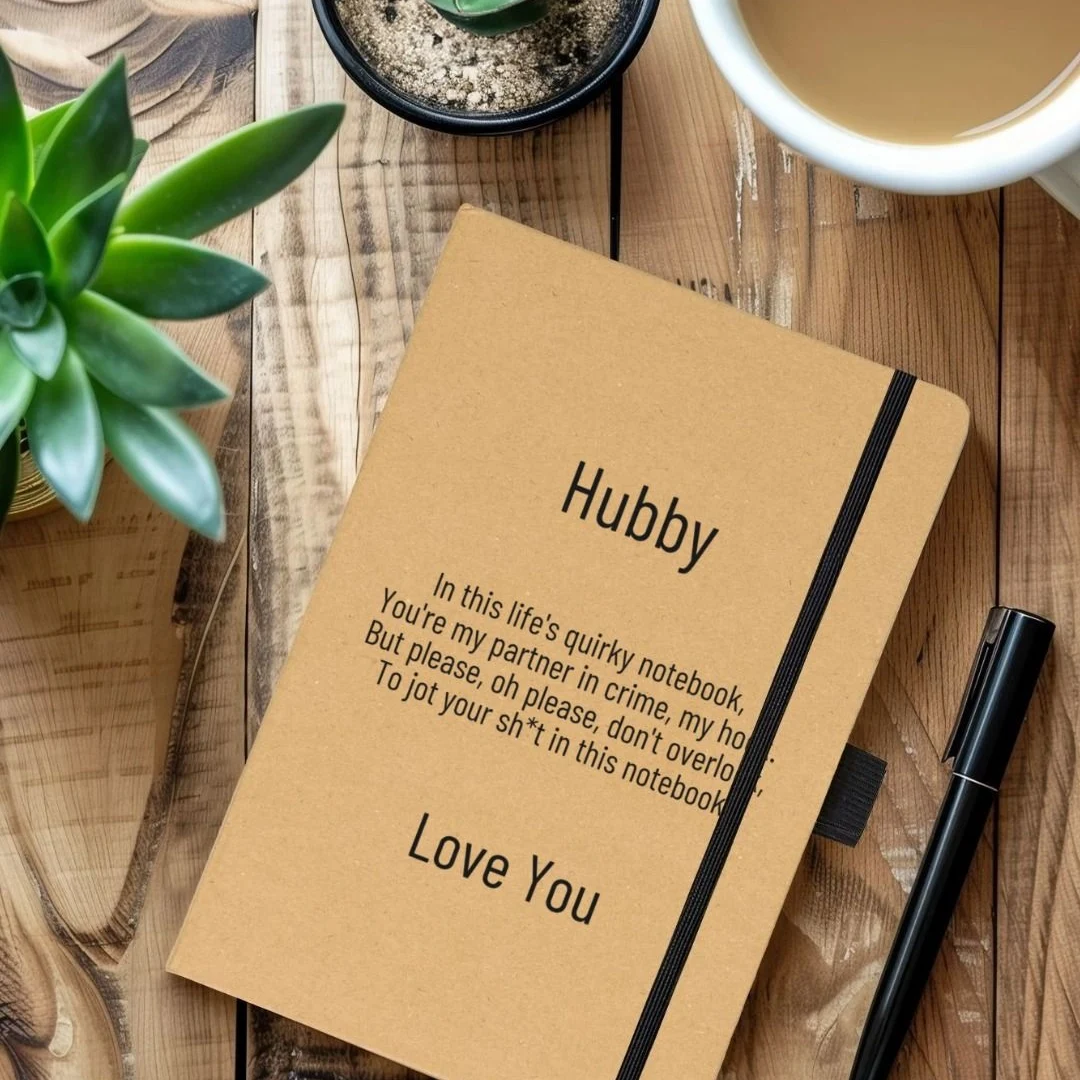 Hubby
In this life's quirky notebook,
You're my partner in crime, my
But please, oh please, don't overlook,
To jot your sh*t in this notebook
Love You